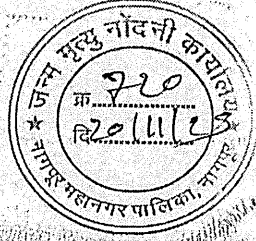 जन्म मृत्यु नोंदनी कार्यालय
क्र. 720
दि. 20/11/23
नागपूर महानगर पालिका, नागपूर